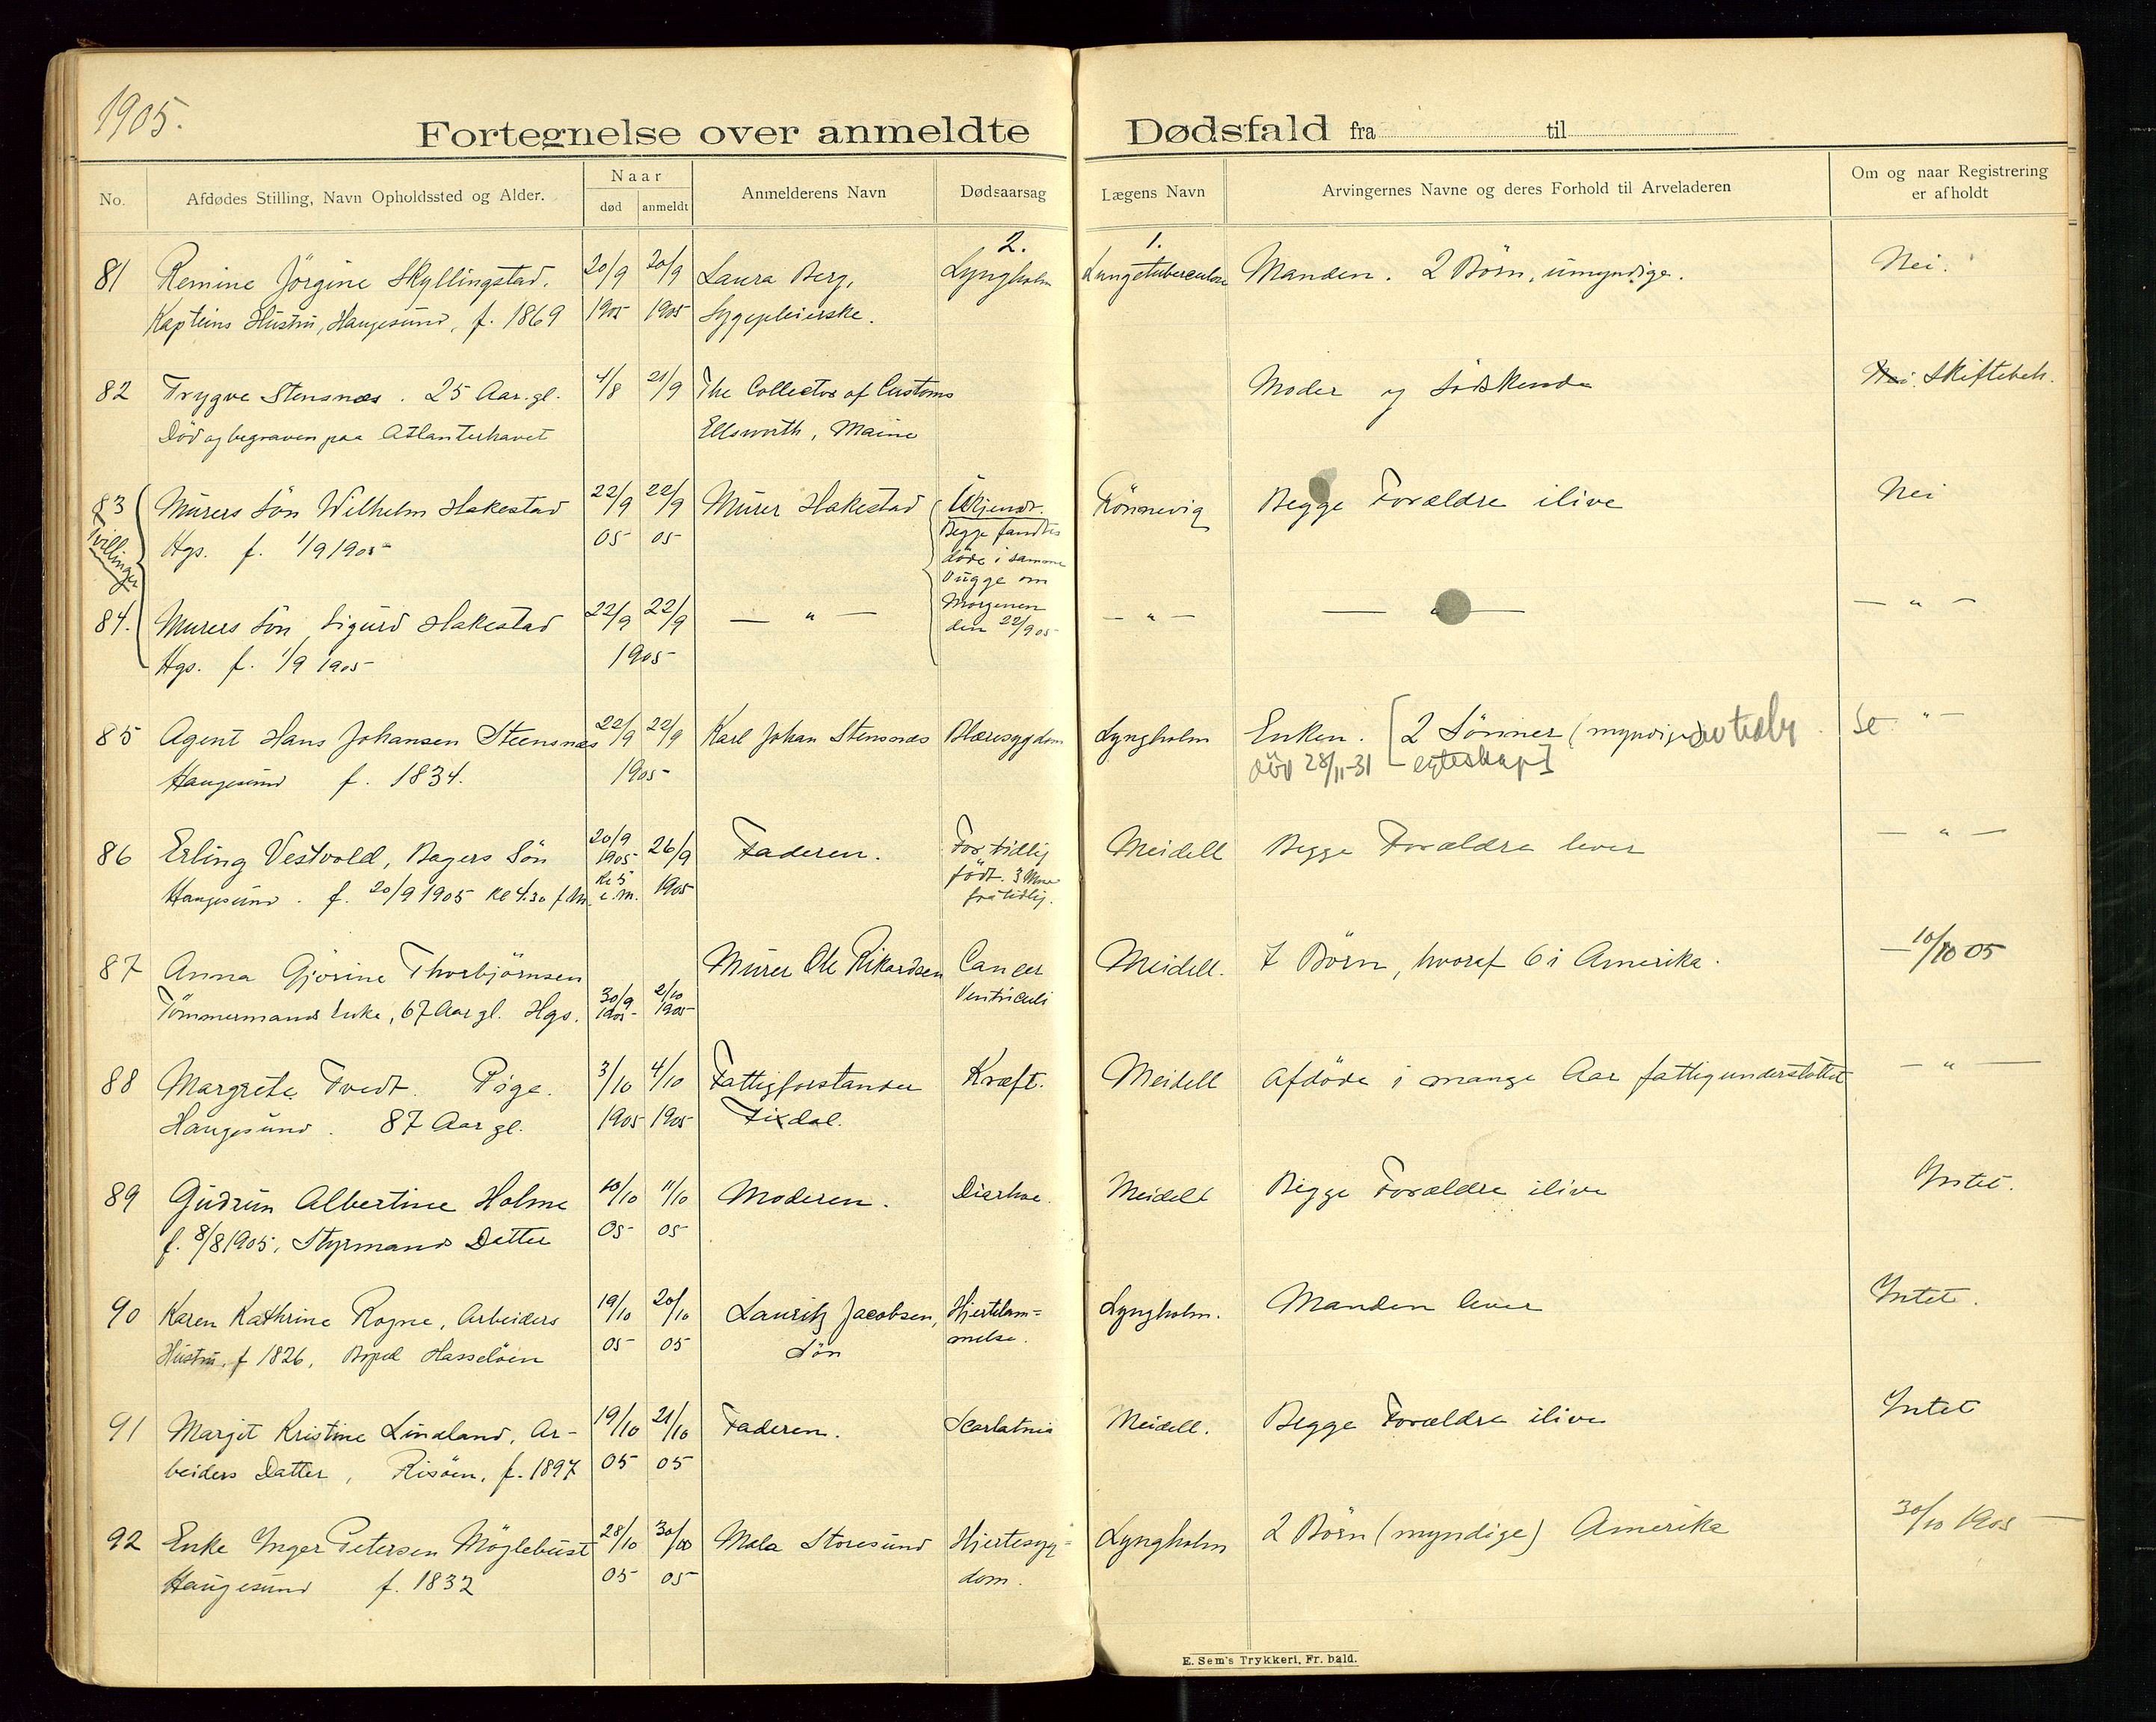 1905.
Fortegnelse over anmeldte Dødsfald fra til
No.
Afdødes Stilling, Navn Opholdssted og Alder.
Naar
død
anmeldt
Anmelderens Navn
Dødsaarsag
Lægens Navn
Arvingernes Navne og deres Forhold til Arveladeren
Om og naar Registrering
er afholdt
2. 1.
81 Remine Jörgine Skyllingstad. 20/9 20/9 Laura Berg, Lyngholm Lungetuberculose Manden. 2 Börn, umyndige. Nei.
Kapteins Hustru, Haugesund, f. 1869 1905 1905 Sygepleierske.
82 Trygve Stensnæs. 25 Aar. gl. 4/8 21/9 The Collector of Customs Moder og Södskende Nei. Skiftebeh.
Död og begraven paa Atlanterhavet Ellsworth, Maine
83 Murers Sön Wilhelm Hakestad 22/9 22/9 Murer Hakestad Ukjendt. Rönnevig Begge Forældre ilive Nei
Tvillinger
Hgs. f. 1/9 1905 05 05 Begge fandtes
döde i samme
Vugge om
Morgenen
den 22/9 05
84. Murers Sön Sigurd Hakestad 22/9 22/9 — " — — " — — " — — " —
Hgs. f. 1/9 1905 1905
85 Agent Hans Johansen Steensnæs 22/9 22/9 Karl Johan Stensnæs Blæresygdom Lyngholm Enken. [2 Sönner (myndige) av tidlg. Se " —
Haugesund f. 1834. 1905 död 28/11-31 egteskap]
86 Erling Vestvold, Bagers Sön 20/9 1905 26/9 Faderen. For tidlig Meidell Begge Forældre lever — " —
Haugesund. f. 20/9 1905 Kl 4.30 f.M. Kl 5 e.M. 1905 födt. 3 Mnr
for tidlig.
87 Anna Gjörine Thorbjörnsen Murer Ole Rikardsen Cancer Meidell. 7 Börn, hvoraf 6 i Amerika. — 10/10 05
Tömmermands Enke, 67 Aar gl. Hgs. 30/9 1905 2/10 1905 Ventriculi
88 Margrete Tvedt. Pige. 3/10 4/10 Fattigforstander Kræft. Meidell Afdöde i mange Aar fattigunderstöttet — " —
Haugesund. 87 Aar gl. 1905 1905 Tixdal.
89 Gudrun Albertine Holme 10/10 11/10 Moderen. Diarhoe. Meidell Begge Forældre ilive Intet.
f. 8/8 1905, Styrmands Datter 05 05
90 Karen Kathrine Rogne, Arbeiders 19/10 20/10 Lauritz Jacobsen, Hjertelam= Lyngholm. Manden lever Intet.
Hustru, f 1826, Bopæl Hasselöen 05 05 Sön melse.
91 Margit Kristine Lindland, Ar- 19/10 21/10 Faderen. Scarlatina Meidell. Begge Forældre ilive Intet
beiders Datter, Risöen, f. 1897 05 05
92 Enke Inger Petersen Möglebust 28/10 30/10 Mala Storesund Hjertesyg= Lyngholm 2 Börn (myndige) Amerika 30/10 1905 —
Haugesund f. 1832 05 05 dom.
E. Sem's Trykkeri, Fr. hald.